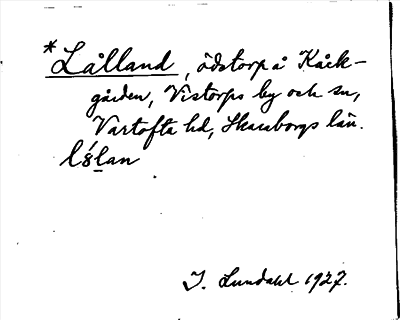 *Lålland, ödstorp å Kåck-
gården, Vistorps by och sn,
Vartofta hd, Skaraborgs län.
I. Lundahl 1927.